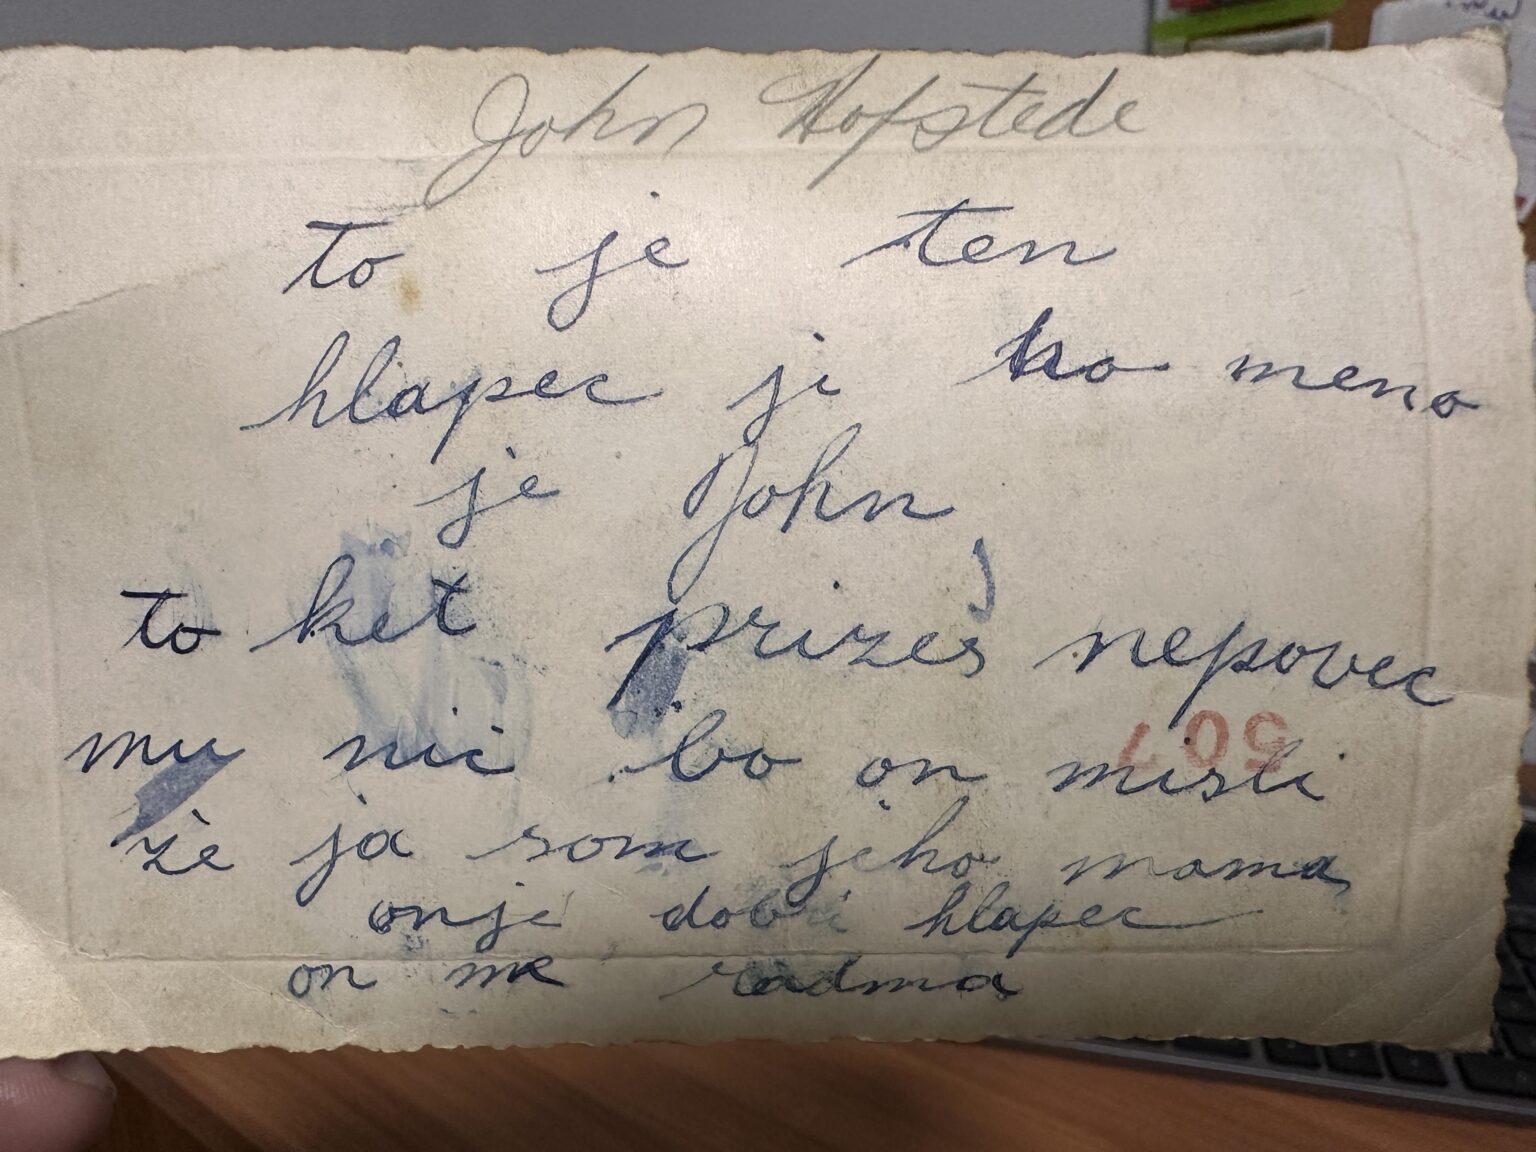 John Hofstede
to je ten
hlapec ji ho meno
je John
to ket prizes nepovec
mu nic bo on misli
507
že ja som jeho mama
onje dobri hlapec
on me radma